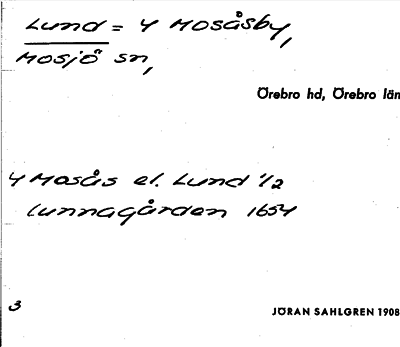 Lund = Y Mosåsby,
Mosjö sn,
Örebro hd, Örebro län
Y Mosås el. Lund 1/2
Lunnagården 1654
3
JÖRAN SAHLGREN 1908